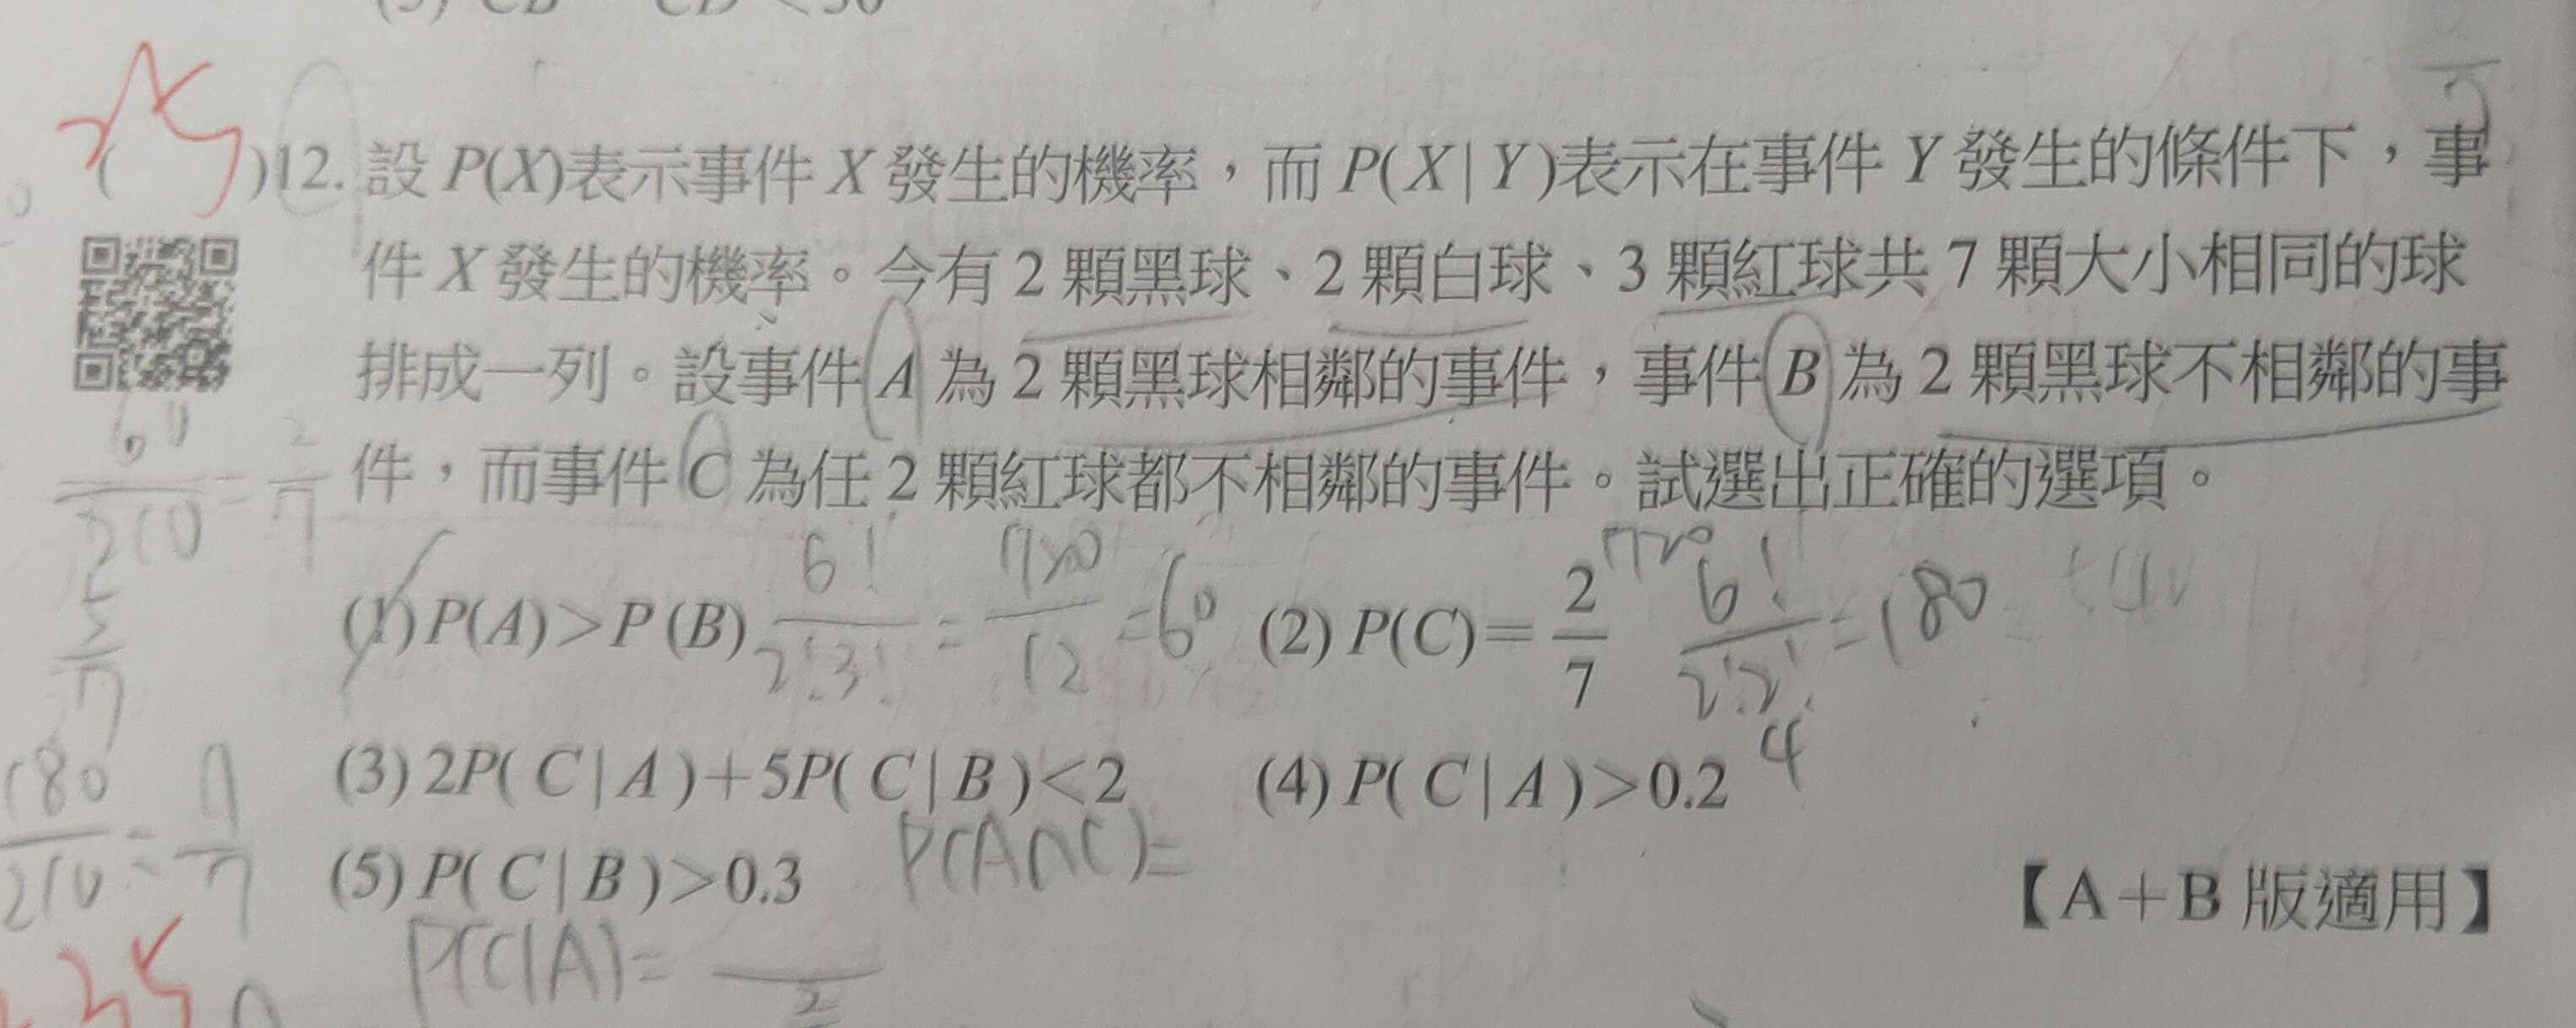 (3) CB CD <50
( 25 )12. 設 P(X)表示事件 X 發生的機率，而 P( X | Y )表示在事件 Y 發生的條件下，事
件 X 發生的機率。今有 2 顆黑球、2 顆白球、3 顆紅球共 7 顆大小相同的球
排成一列。設事件 A 為 2 顆黑球相鄰的事件，事件 B 為 2 顆黑球不相鄰的事
件，而事件 C 為任 2 顆紅球都不相鄰的事件。試選出正確的選項。
60/210 = 2/7
5/7
(1) P(A)＞P (B) 6!/2!3! = 720/12 = 60 (2) P(C)＝2/7 720 6!/2!2! = 180
4
(3) 2P( C | A )＋5P( C | B )＜2 (4) P( C | A )＞0.2
180/210 =
(5) P( C | B )＞0.3 P(A∩C)=
【A＋B 版適用】
P(C|A)= /2
235